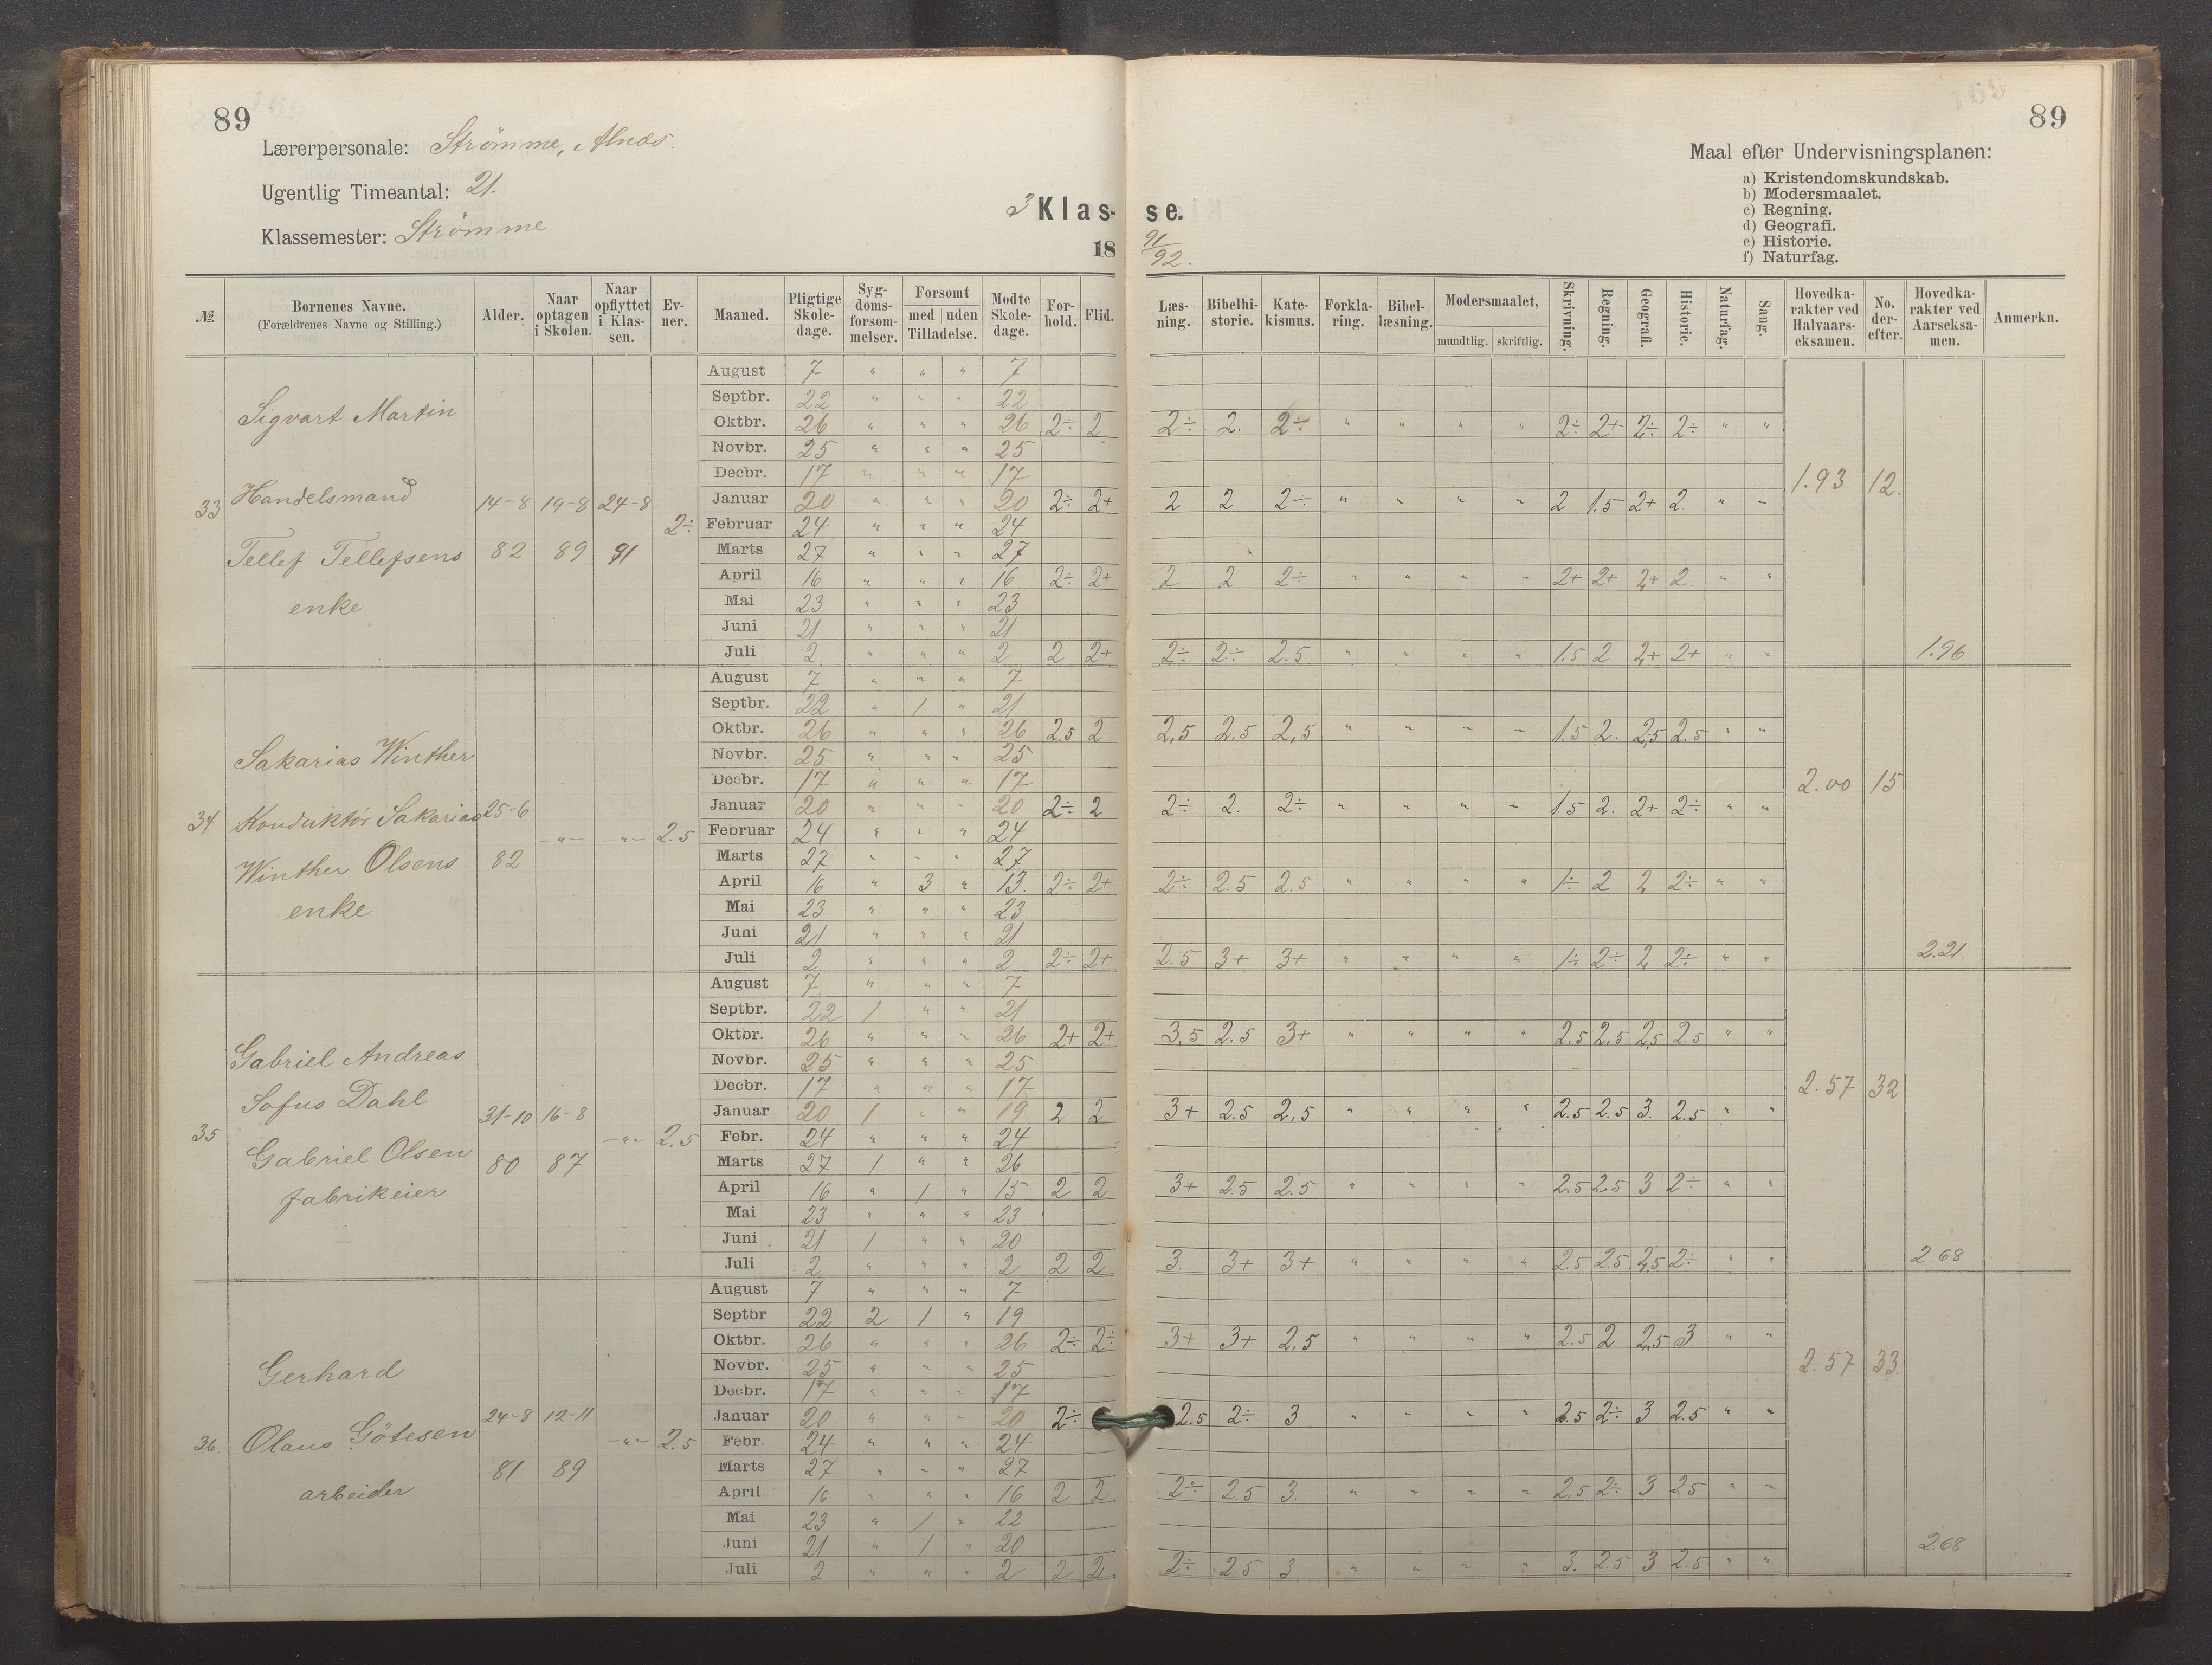 89
89
Lærerpersonale: Strømme, Alnæs.
Ugentlig Timeantal: 21.
Klassemester: Strømme
3 Klas- se.
18 91/92.
Maal efter Undervisningsplanen:
a) Kristendomskundskab.
b) Modersmaalet.
c) Regning.
d) Geografi.
e) Historie.
f) Naturfag.
№ | Børnenes Navne. (Forældrenes Navne og Stilling.) | Alder. | Naar optagen i Skolen. | Naar opflyttet i Klassen. | Evner. | Maaned. | Pligtige Skoledage. | Sygdomsforsommelser. | Forsømt med | uden Tilladelse. | Mødte Skoledage. | Forhold. | Flid. | Læsning. | Bibelhistorie. | Katekismus. | Forklaring. | Bibellæsning. | Modersmaalet, mundtlig. | skriftlig. | Skrivning. | Regning. | Geografi. | Historie. | Naturfag. | Sang. | Hovedkarakter ved Halvaarseksamen. | No. derefter. | Hovedkarakter ved Aarseksamen. | Anmerkn.
33 Sigvart Martin
Handelsmand
Tellef Tellefsens
enke
14-8 82 | 19-8 89 | 24-8 91 | 2÷
August 7 " " " 7
Septbr. 22 " " " 22
Oktbr. 26 " " " 26 2÷ 2 2÷ 2. 2÷ " " " " 2÷ 2+ 2÷ 2÷ " "
Novbr. 25 " " " 25
Decbr. 17 " " " 17 1.93 12.
Januar 20 " " " 20 2÷ 2+ 2 2 2÷ " " " " 2 1.5 2+ 2. " "
Februar 24 " " " 24
Marts 27 " " " 27
April 16 " " " 16 2÷ 2+ 2 2 2÷ " " " " 2+ 2+ 2+ 2. " "
Mai 23 " " " 23
Juni 21 " " " 21
Juli 2 " " " 2 2 2+ 2÷ 2÷ 2.5 " " " " 1.5 2 2+ 2+ " " 1.96
34 Sakarias Winther
Konduktör Sakarias
Winther Olsens
enke
25-6 82 | -"- | -"- | 2.5
August 7 " " " 7
Septbr. 22 " 1 " 21
Oktbr. 26 " " " 26 2.5 2 2,5 2.5 2,5 " " " " 1.5 2. 2,5 2.5 " "
Novbr. 25 " " " 25
Decbr. 17 " " " 17 2.00 15
Januar 20 " " " 20 2÷ 2 2÷ 2. 2÷ " " " " 1.5 2. 2+ 2÷ " "
Februar 24 " " " 24
Marts 27 " " " 27
April 16 " 3 " 13. 2÷ 2+ 2÷ 2.5 2.5 " " " " 1÷ 2 2 2÷ " "
Mai 23 " " " 23
Juni 21 " " " 21
Juli 2 " " " 2 2÷ 2+ 2.5 3+ 3+ " " " " 1÷ 2÷ 2 2÷ " " 2.21.
35 Gabriel Andreas
Sofus Dahl
Gabriel Olsen
fabrikeier
31-10 80 | 16-8 87 | -"- | 2.5
August 7 " " " 7
Septbr. 22 1 " " 21
Oktbr. 26 " " " 26 2+ 2+ 3,5 2.5 3+ " " " " 2.5 2,5 2,5 2.5 " "
Novbr. 25 " " " 25
Decbr. 17 " " " 17 2.57 32
Januar 20 1 " " 19 2 2 3+ 2.5 2,5 " " " " 2.5 2.5 3. 2.5 " "
Febr. 24 " " " 24
Marts 27 1 " " 26
April 16 " 1 " 15 2 2 3+ 2.5 2.5 " " " " 2.5 2.5 3 2÷ " "
Mai 23 " " " 23
Juni 21 1 " " 20
Juli 2 " " " 2 2 2 3. 3+ 3+ " " " " 2.5 2.5 2,5 2÷ " " 2.68
36. Gerhard
Olaus Götesen
arbeider
24-8 81 | 12-11 89 | -"- | 2.5
August 7 " " " 7
Septbr 22 2 1 " 19
Oktbr. 26 " " " 26 2÷ 2÷ 3+ 3+ 2,5 " " " " 2.5 2 2,5 3 " "
Novbr. 25 " " " 25 2.57 33.
Decbr. 17 " " " 17
Januar 20 " " " 20 2÷ 2.5 2÷ 3 " " " " 2.5 2÷ 3 2.5 " "
Febr. 24 " " " 24
Marts 27 " " " 27
April 16 " " " 16 2 2 2÷ 2.5 3. " " " " 2.5 2÷ 3 2.5 " "
Mai 23 " 1 " 22
Juni 21 " 1 " 20 2.68
Juli 2 " " " 2 2 2 2÷ 2.5 3 " " " " 3. 2.5 3 2.5 " "